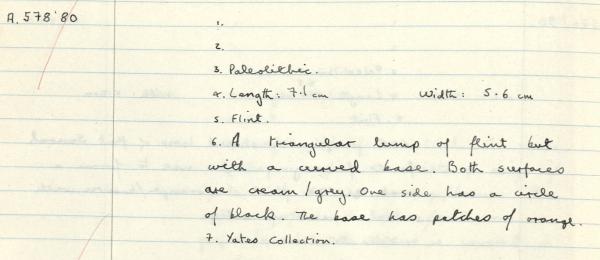 A. 578'80
1.
2.
3. Paleolithic.
4. Length: 7.1 cm Width: 5.6 cm
5. Flint.
6. A triangular lump of flint but
with a curved base. Both surfaces
are cream/grey. One side has a circle
of black. The base has patches of orange.
7. Yates Collection.